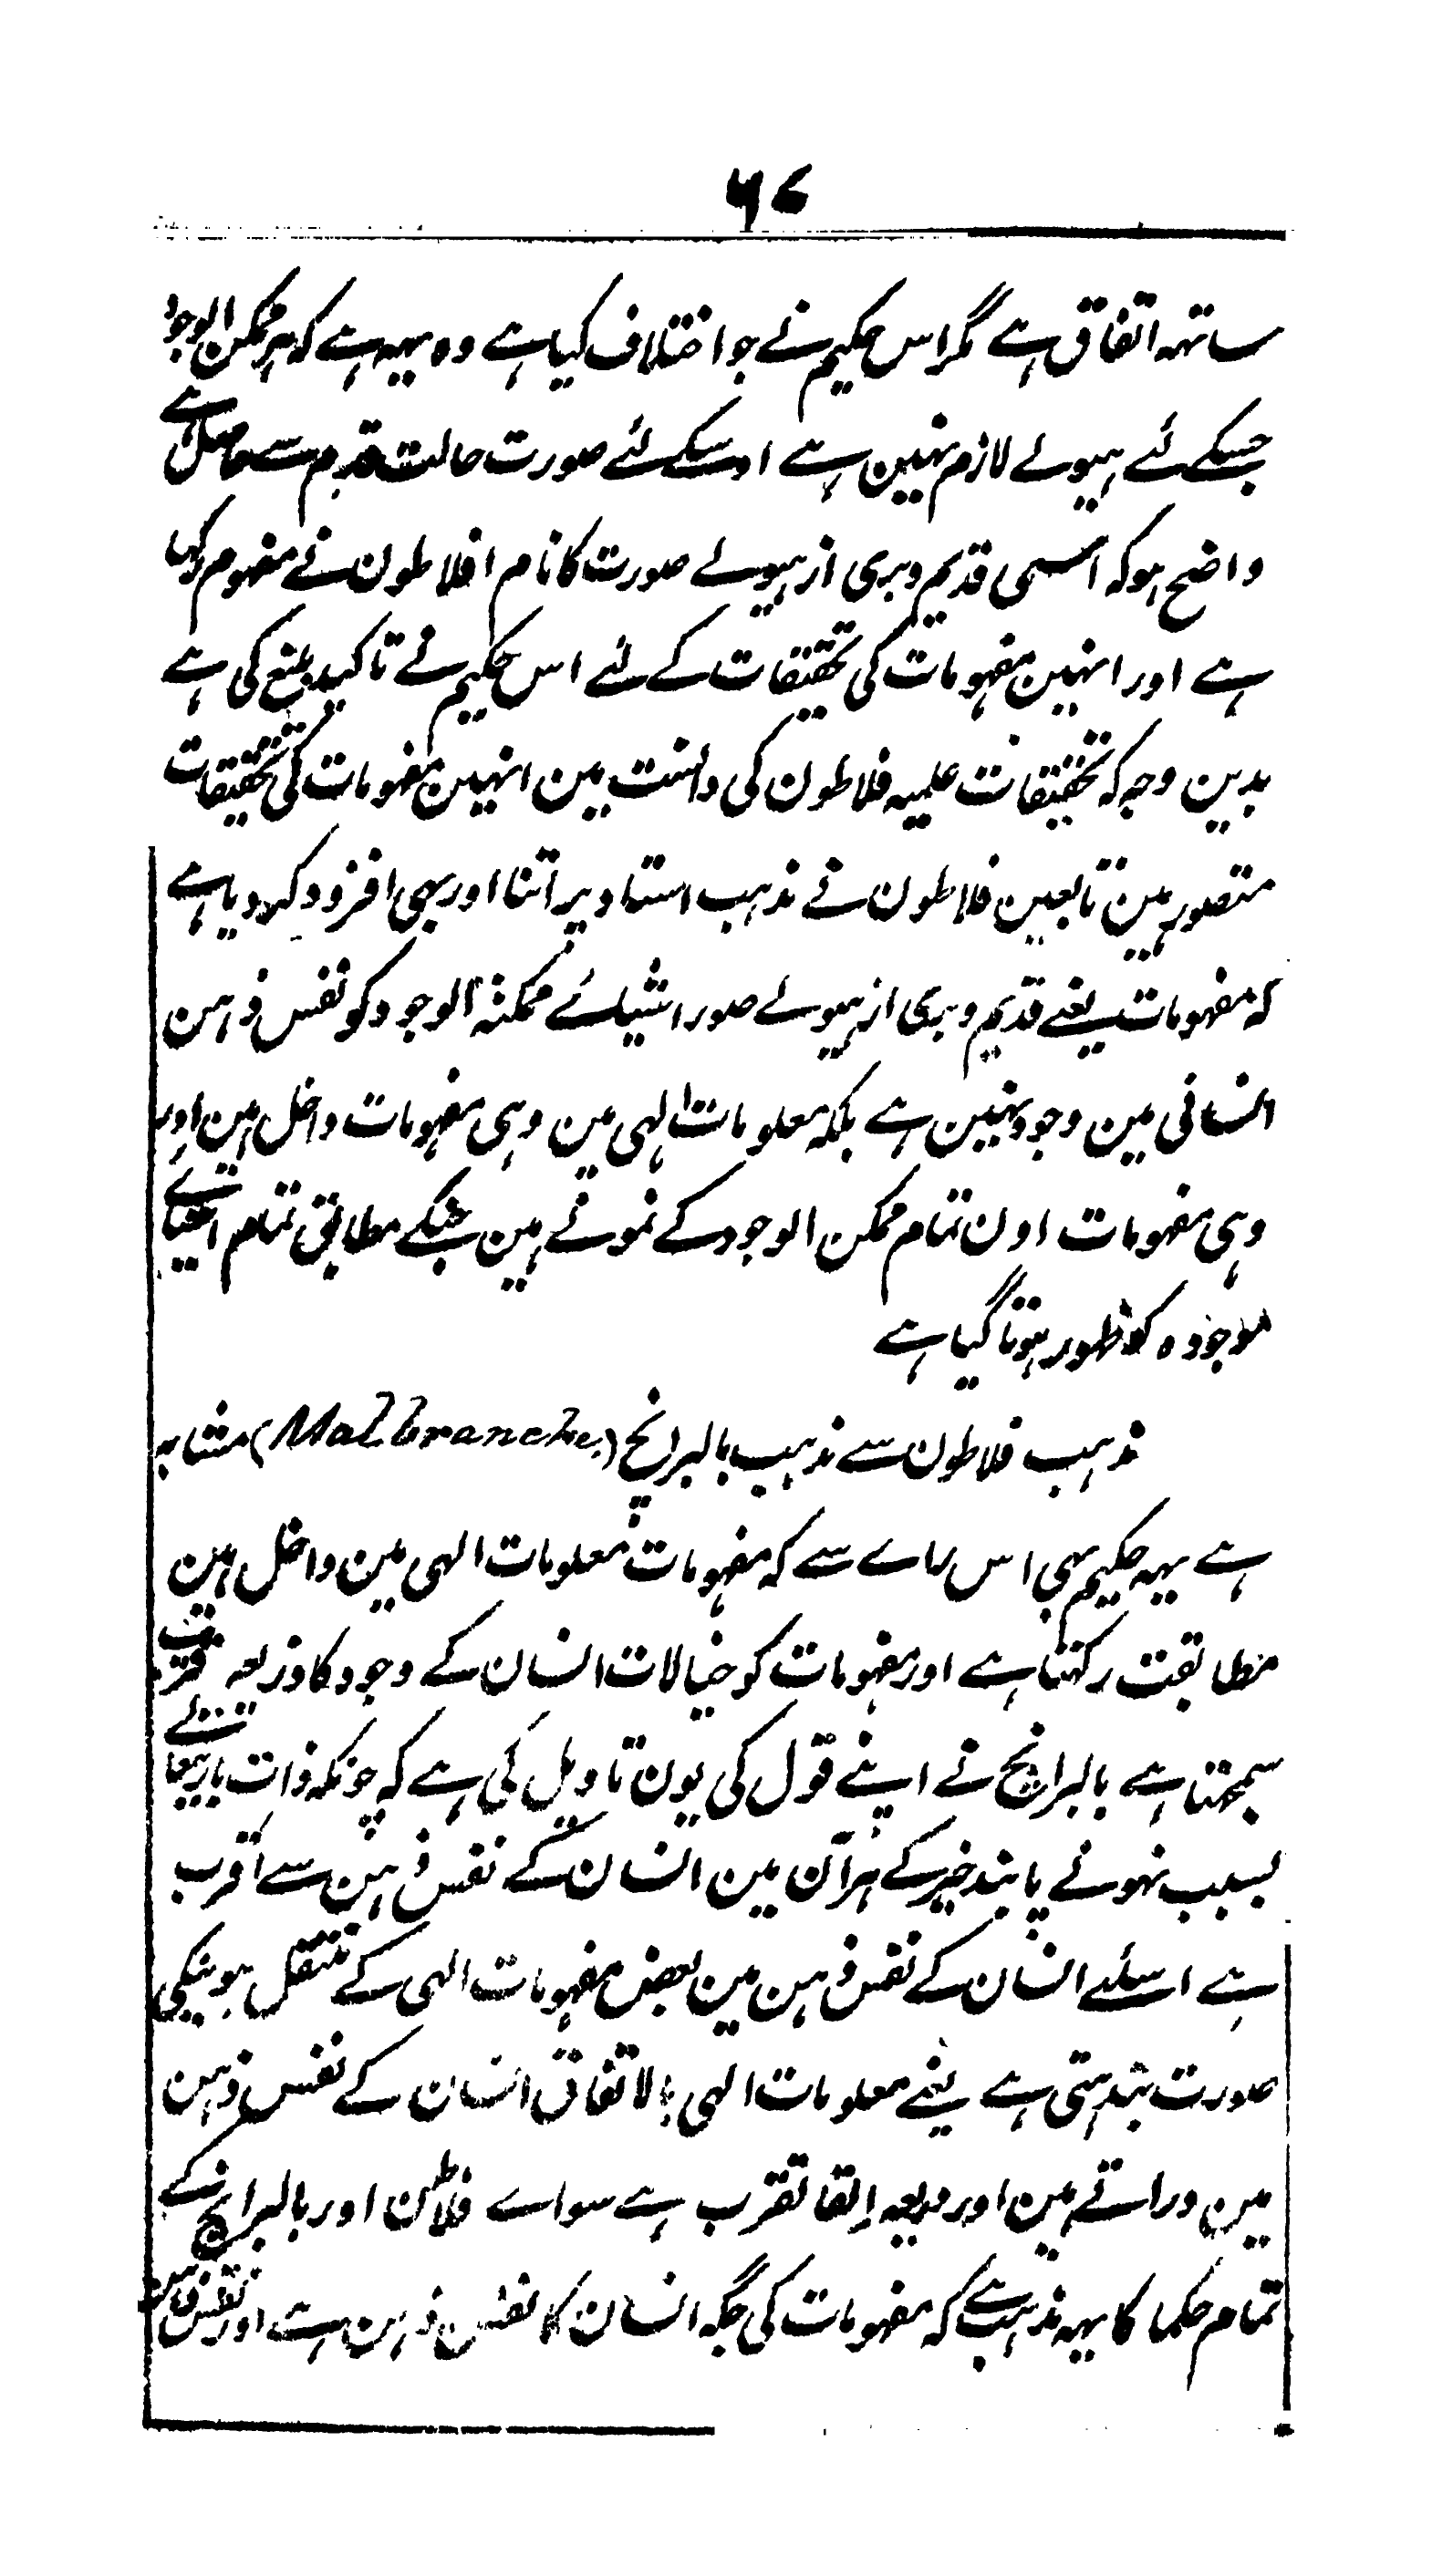 ۶۷
ساتہہ اتفاق ہے مگر اس حکیم نے جو اختلاف کیا ہے وہ یہہ ہے کہ ہر ممکن الوجود
جسکے لئے ہیولے لازم نہین ہے اوسکے لئے صورت حالت قدم سے حاصل ہے
واضح ہو کہ اسی قدیم و بری از ہیولے صورت کا نام افلاطون نے مفہوم رکہا
ہے اور انہین مفہومات کی تحقیقات کے لئے اس حکیم نے تاکید بلیغ کی ہے
بدین وجہ کہ تحقیقات علمیہ فلاطون کی دانست مین انہین مفہومات کی تحقیقات
متصور ہین تابعین فلاطون نے مذہب استاد پر اتنا اور بہی افزود کر دیا ہے
کہ مفہومات یعنے قدیم و بری از ہیولے صور اشیائے ممکنۃ الوجود کو نفس ذہن
انسانی مین وجود نہین ہے بلکہ معلومات الہی مین وہی مفہومات داخل ہین اور
وہی مفہومات اون تمام ممکن الوجود کے نمونے ہین جنکے مطابق تمام اشیائے
موجودہ کو ظہور ہوتا گیا ہے
مذہب فلاطون سے مذہب مالبرانچ (Malbranche) مشابہ
ہے یہہ حکیم بہی اس راے سے کہ مفہومات معلومات الہی مین داخل ہین
مطابقت رکہتا ہے اور مفہومات کو خیالات انسان کے وجود کا ذریعہ قربت
سمجہتا ہے مالبرانچ نے اپنے قول کی یون تاویل کی ہے کہ چونکہ ذات باریتعالے
بسبب نہونے پابند خیر کے ہر آن مین انسان کے نفس ذہن سے اقرب
ہے اسلئے انسان کے نفس ذہن مین بعض مفہومات الہی کے منتقل ہونیکی
صورت بندہتی ہے یعنے معلومات الہی بالاتفاق انسان کے نفس ذہن
مین در آتے ہین اور ذریعہ اِلقا تقرب ہے سواے فلاطن اور مالبرانچ کے
تمام حکما کا یہہ مذہب ہے کہ مفہومات کی جگہ انسان کا نفس ذہن ہے اور نفس ذہن